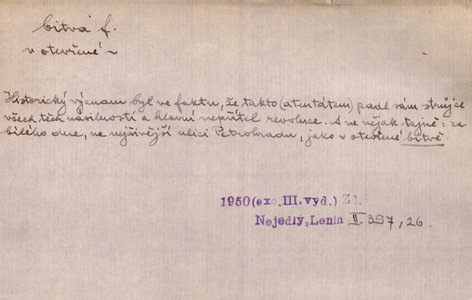 bitva f.
v otevřené ~
Historický význam byl ve faktu, že takto (atentátem) padl sám strůjce
všech těch násilností a hlavní nepřítel revoluce. A ne nějak tajně: za
bílého dne, na nejživější ulici Petrohradu, jako v otevřené bitvě.
1950 (exc. III. vyd.) Zd.
Nejedlý, Lenin II. 357, 26.